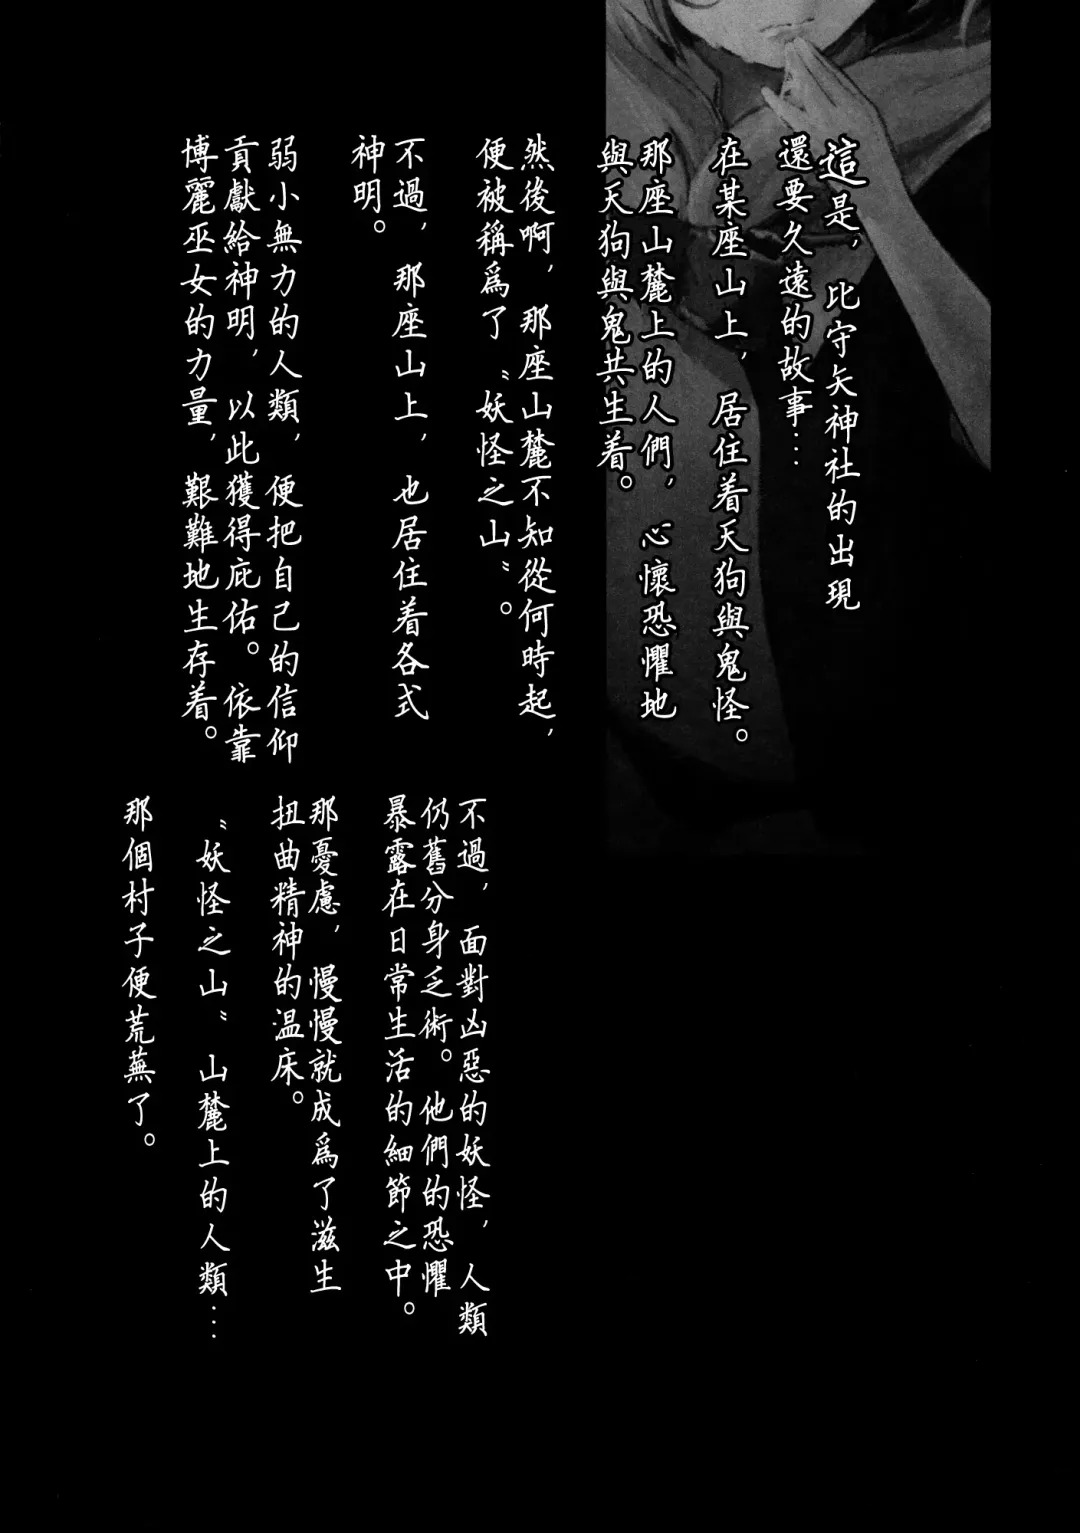 這是，比守矢神社的出現
還要久遠的故事…
在某座山上，居住着天狗與鬼怪。
那座山麓上的人們，心懷恐懼地
與天狗與鬼共生着。
然後啊，那座山麓不知從何時起，
便被稱爲了“妖怪之山”。
不過，那座山上，也居住着各式
神明。
弱小無力的人類，便把自己的信仰
貢獻給神明，以此獲得庇佑。依靠
博麗巫女的力量，艱難地生存着。
不過，面對凶惡的妖怪，人類
仍舊分身乏術。他們的恐懼
暴露在日常生活的細節之中。
那憂慮，慢慢就成爲了滋生
扭曲精神的温床。
“妖怪之山”山麓上的人類…
那個村子便荒蕪了。